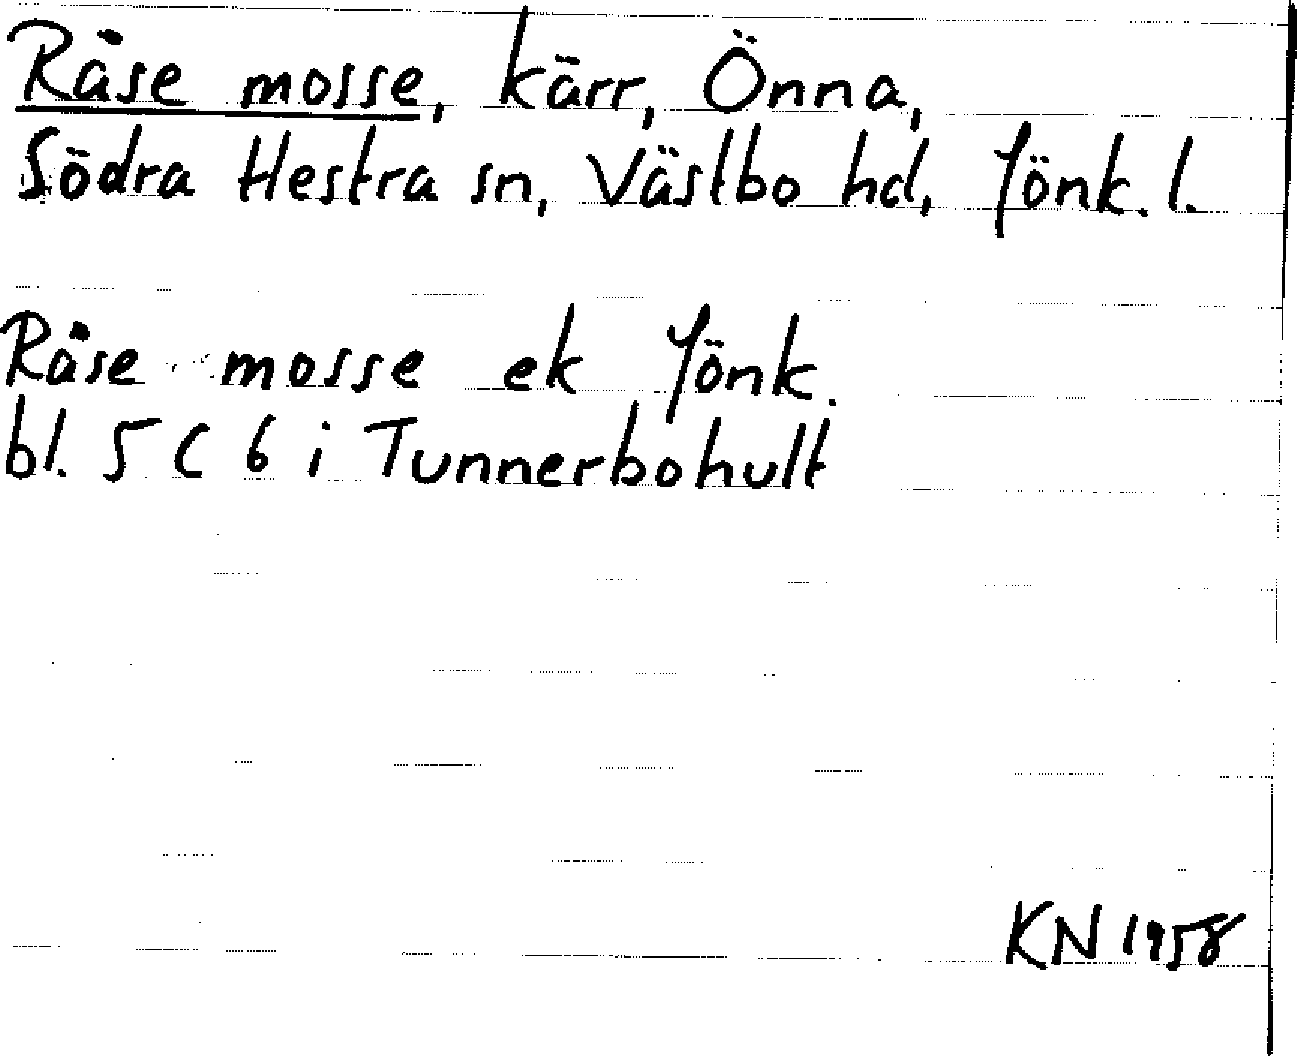 Råse mosse, kärr, Önna,
Södra Hestra sn, Västbo hd, Jönk. l.
Råse mosse ek Jönk.
bl. 5 C 6 i Tunnerbohult
KN 1958